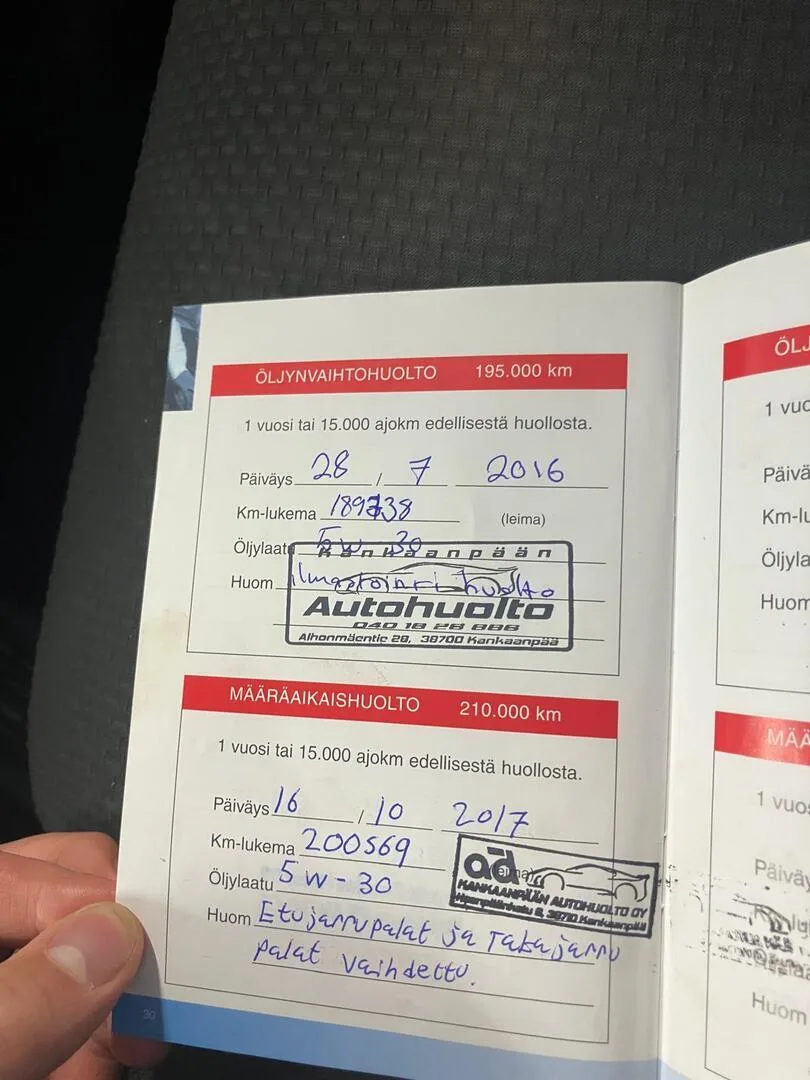 ÖLJYNVAIHTOHUOLTO 195.000 km
1 vuosi tai 15.000 ajokm edellisestä huollosta.
Päiväys 28 / 7 2016
Km-lukema 189738
(leima)
Öljylaatu 5W-30
Huom ilmastointihuolto
Kankaanpään
Autohuolto
040 18 28 888
38700 Kankaanpää
MÄÄRÄAIKAISHUOLTO 210.000 km
1 vuosi tai 15.000 ajokm edellisestä huollosta.
Päiväys 16 / 10 2017
Km-lukema 200569
Öljylaatu 5W-30
ad
KANKAANPÄÄN AUTOHUOLTO OY
Huom Etujarrupalat ja Takajarru
palat vaihdettu.
30
ÖLJ
1 vuo
Päivä
Km-lu
Öljyla
Huom
MÄÄ
1 vuos
Päiväy
Huom